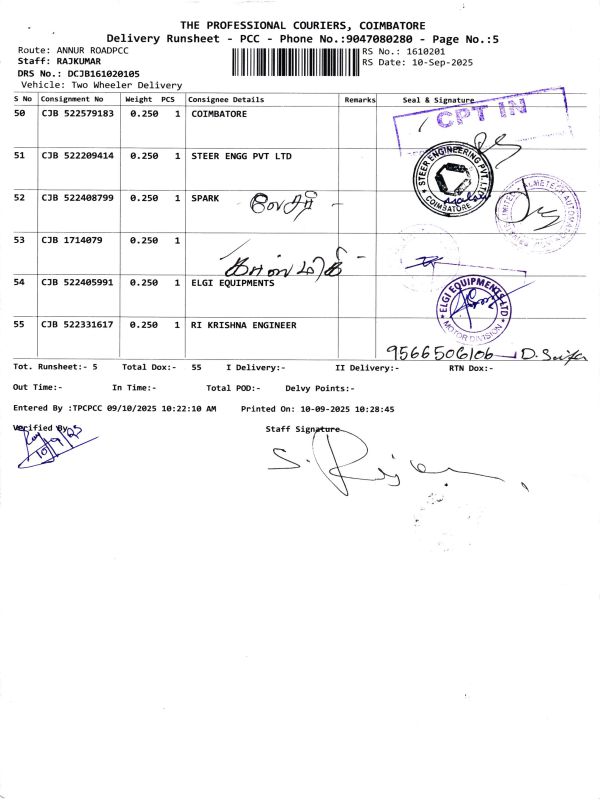 THE PROFESSIONAL COURIERS, COIMBATORE
Delivery Runsheet - PCC - Phone No.:9047080280 - Page No.:5
Route: ANNUR ROADPCC
RS No.: 1610201
Staff: RAJKUMAR
RS Date: 10-Sep-2025
DRS No.: DCJB161020105
Vehicle: Two Wheeler Delivery
S No Consignment No Weight PCS Consignee Details Remarks Seal & Signature
50 CJB 522579183 0.250 1 COIMBATORE
CPT IN
51 CJB 522209414 0.250 1 STEER ENGG PVT LTD
STEER ENGINEERING PVT. LTD
COIMBATORE
52 CJB 522408799 0.250 1 SPARK
53 CJB 1714079 0.250 1
54 CJB 522405991 0.250 1 ELGI EQUIPMENTS
ELGI EQUIPMENTS LTD
MOTOR DIVISION
55 CJB 522331617 0.250 1 RI KRISHNA ENGINEER
9566506106
Tot. Runsheet:- 5 Total Dox:- 55 I Delivery:- II Delivery:- RTN Dox:-
Out Time:- In Time:- Total POD:- Delvy Points:-
Entered By :TPCPCC 09/10/2025 10:22:10 AM Printed On: 10-09-2025 10:28:45
Verified By
Staff Signature
10/9/25